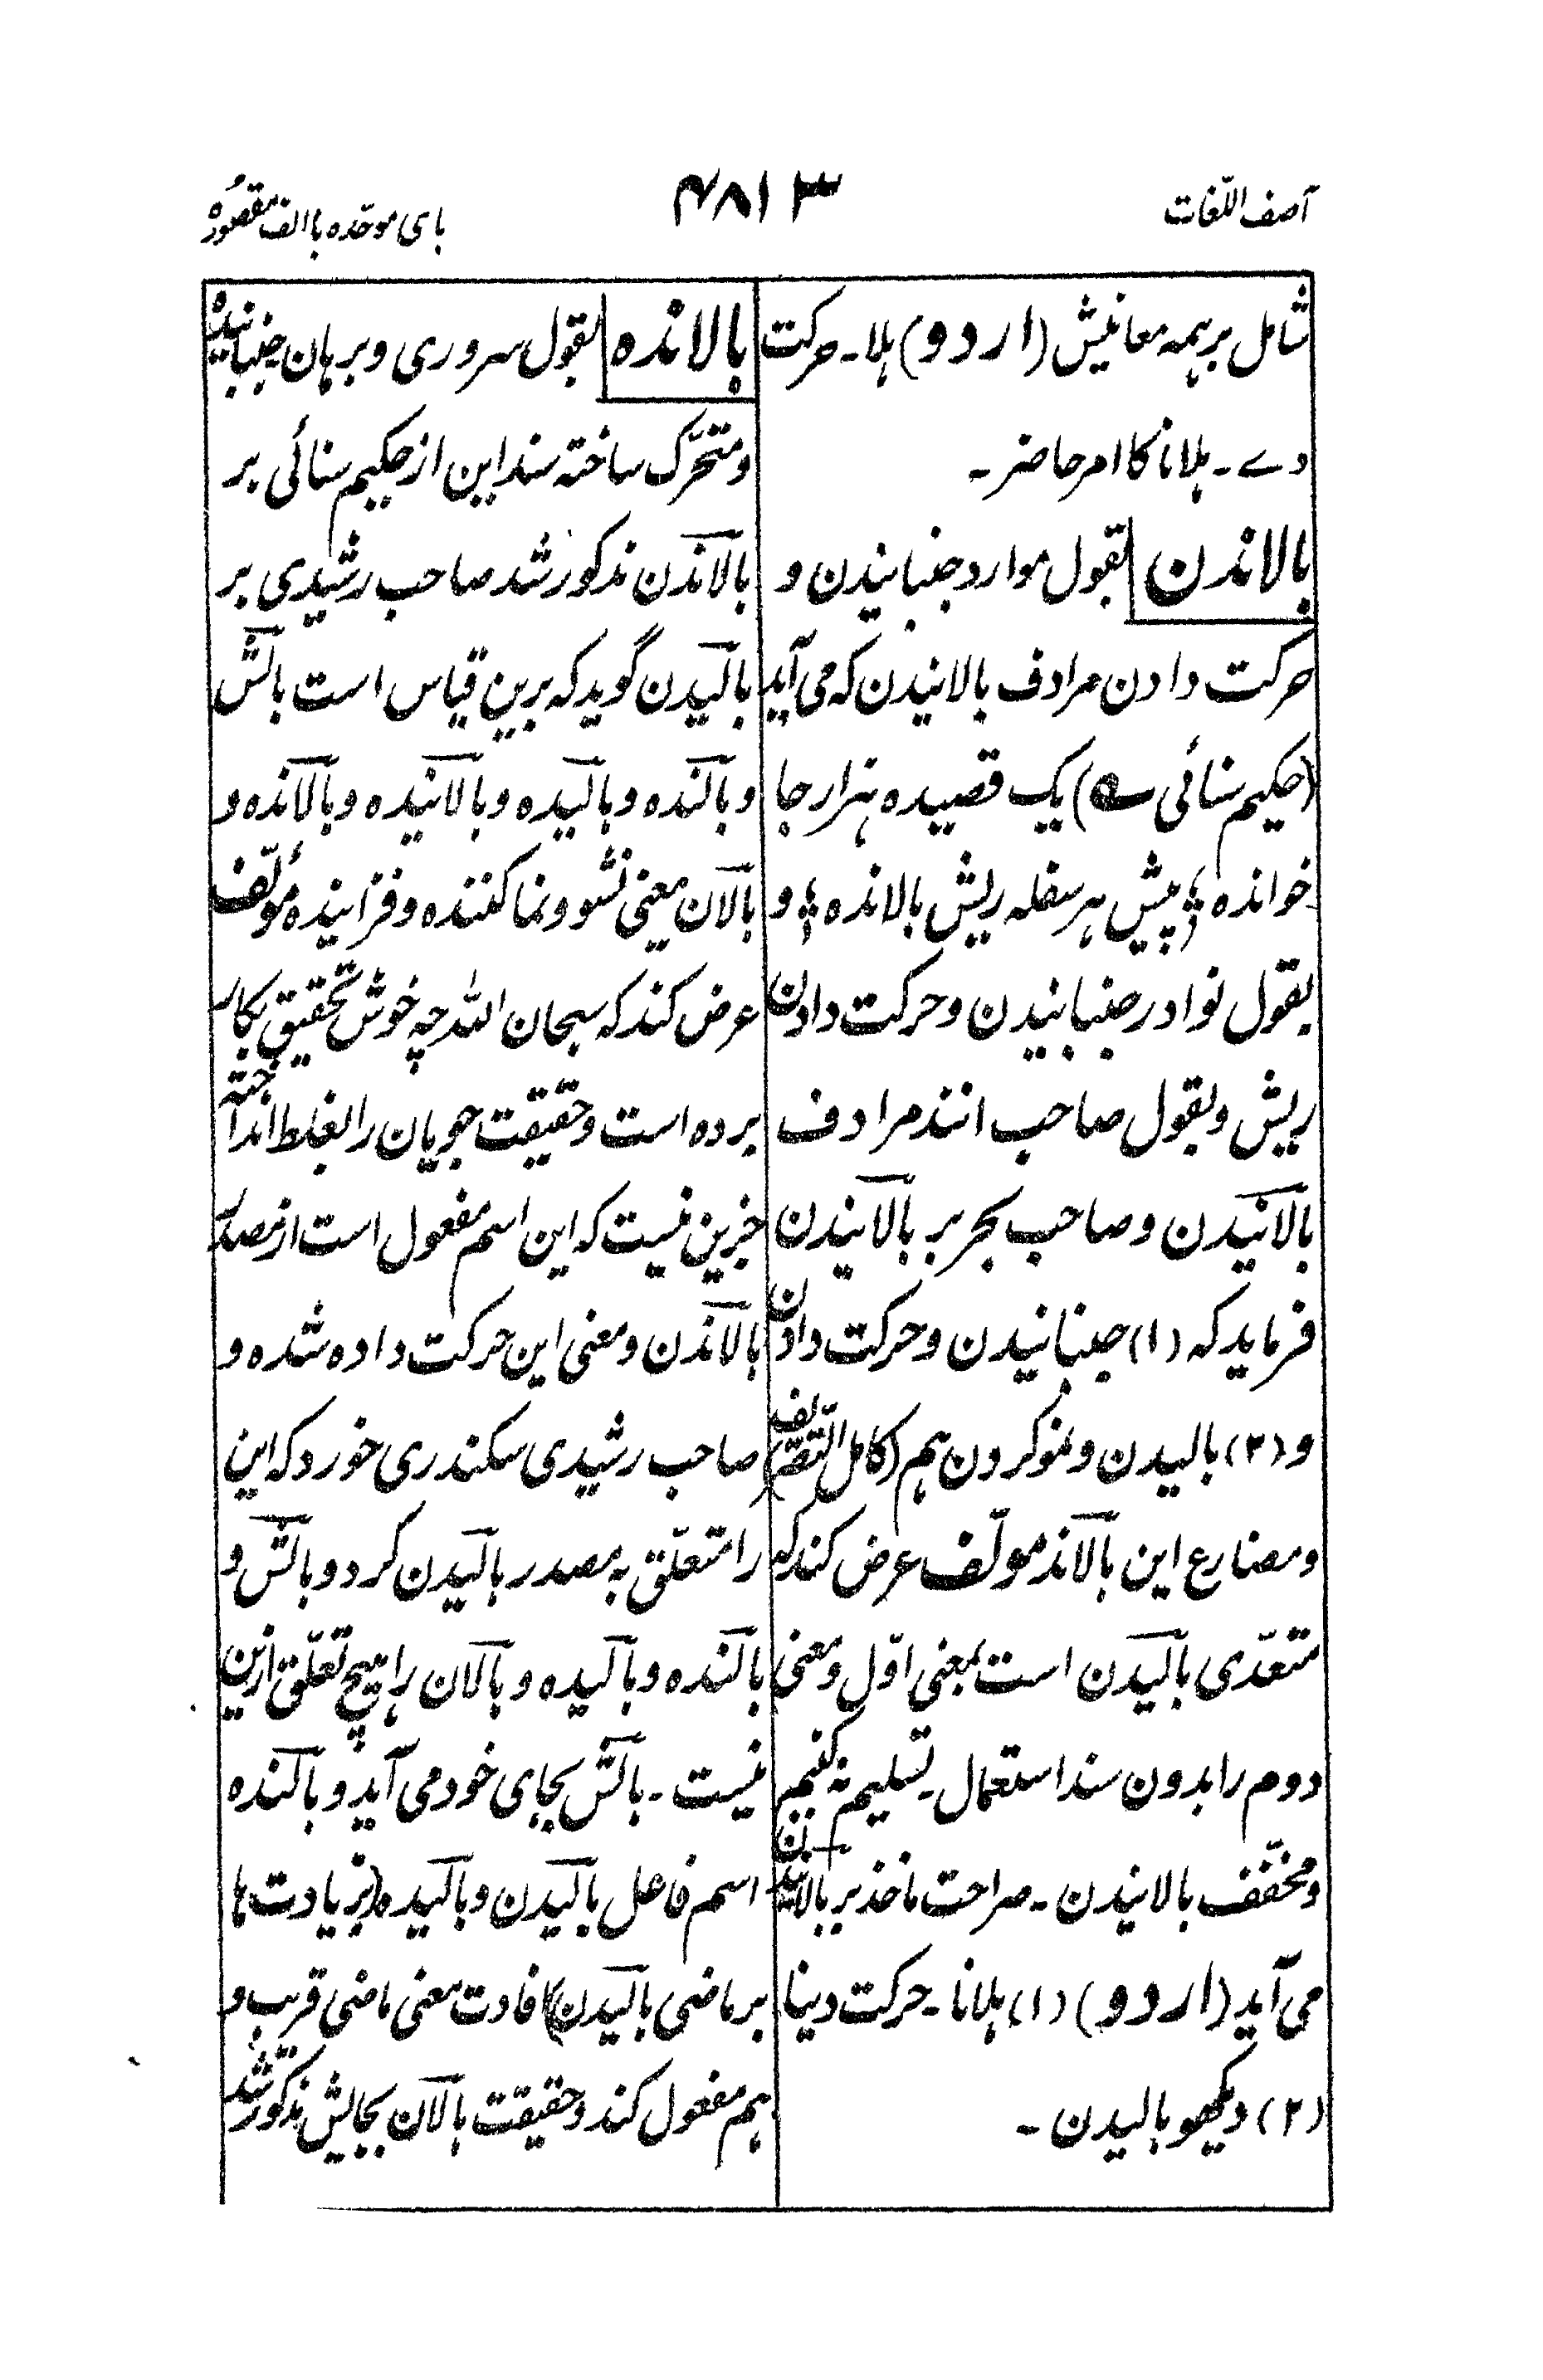 آصف اللّغات
۴۸۱۳
بای موحّدہ باالف مقصورہ
شامل بر ہمہ معانیش (اردو) ہلا۔ حرکت
دے۔ ہلانا کا امر حاضر۔
بالاندن بقول موارد جنبانیدن و
حرکت دادن مرادف بالانیدن کہ می آید
(حکیم سنائی ؎) یک قصیدہ ہزار جا
خواندہ ؛ پیش ہر سفلہ ریش بالاندہ ؛ و
بقول نوادر جنبانیدن و حرکت دادن
ریش و بقول صاحب انند مرادف
بالانیدن و صاحب بحر بر بالانیدن
فرماید کہ (۱) جنبانیدن و حرکت دادن
و (۲) بالیدن و نمو کردن ہم (کامل التصریف)
و مضارع این بالاند مؤلّف عرض کند کہ
متعدّی بالیدن است بمعنی اوّل و معنی
دوم را بدون سند استعمال تسلیم نہ کنیم
و مخفّف بالانیدن۔ صراحت ماخذ بر بالانیدن
می آید (اردو) (۱) ہلانا۔ حرکت دینا
(۲) دیکھو بالیدن۔
بالاندہ بقول سروری و برہان جنبانیدہ
و متحرّک ساختہ سند این از حکیم سنائی بر
بالاندن مذکور شد صاحب رشیدی بر
بالیدن گوید کہ برین قیاس است بالش
و بالندہ و بالیدہ و بالانیدہ و بالاندہ و
بالان معنی نشو و نما کنندہ و فزایندہ مؤلّف
عرض کند کہ سبحان اللہ چہ خوش تحقیق بکار
بردہ است و حقیقت جویان را بغلط انداختہ
جزین نیست کہ این اسم مفعول است از مصدر
بالاندن و معنی این حرکت دادہ شدہ و
صاحب رشیدی سکندری خورد کہ این
را متعلّق بہ مصدر بالیدن کرد و بالش و
بالندہ و بالیدہ و بالان را ہیچ تعلّق ازین
نیست۔ بالش بجای خود می آید و بالندہ
اسم فاعل بالیدن و بالیدہ (بزیادت ہا
بر ماضی بالیدن) افادت معنی ماضی قریب و
ہم مفعول کند و حقیقت بالان بجایش مذکور شد